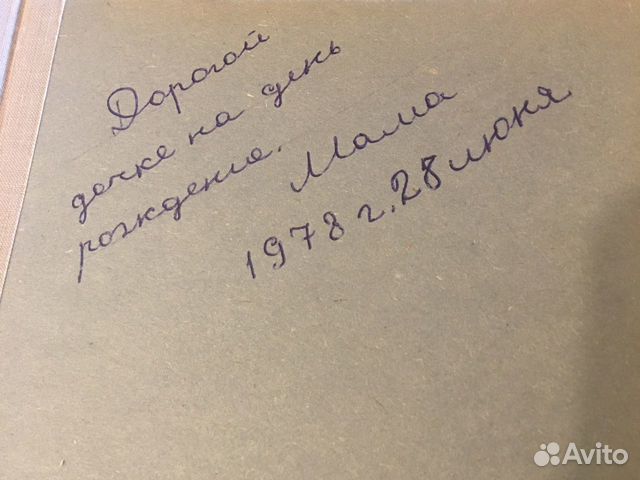 Дорогой
дочке на день
рождение.
Мама
1978 г. 28 июня
Avito